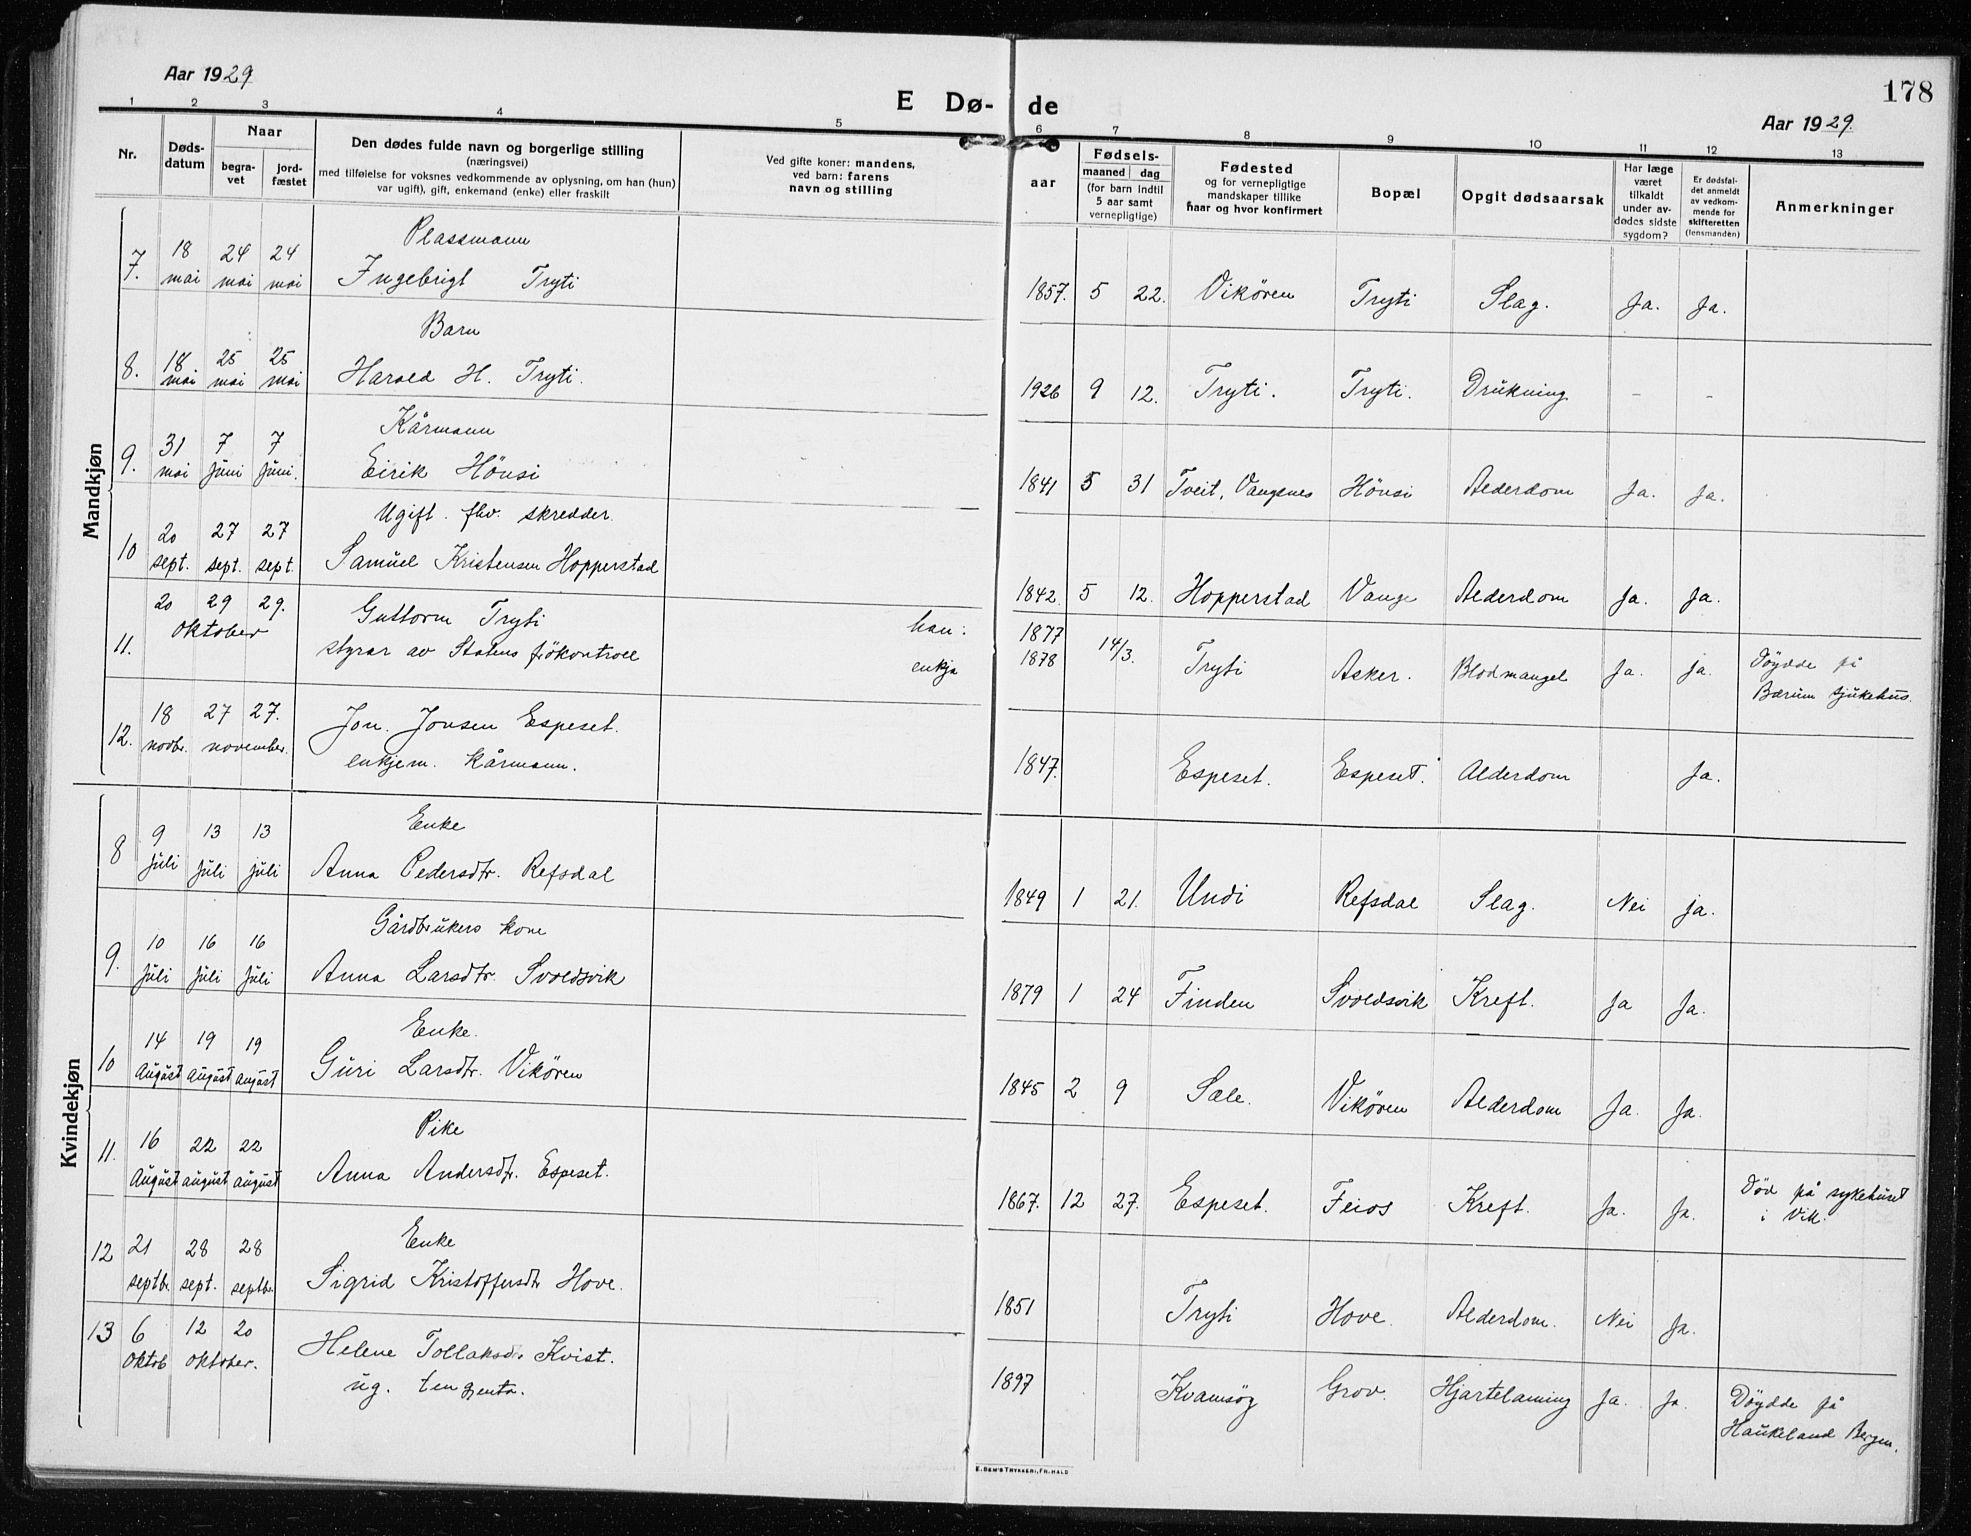 Aar 1929
E Dø- de
178
Aar 1929.
1 2 3 4 5 6 7 8 9 10 11 12 13
Nr.
Døds-
datum
Naar
begra-
vet
jord-
fæstet
Den dødes fulde navn og borgerlige stilling
(næringsvei)
med tilføielse for voksnes vedkommende av oplysning, om han (hun)
var ugift), gift, enkemand (enke) eller fraskilt
Ved gifte koner: mandens,
ved barn: farens
navn og stilling
aar
Fødsels-
maaned dag
(for barn indtil
5 aar samt
vernepligtige)
Fødested
og for vernepligtige
mandskaper tillike
naar og hvor konfirmert
Bopæl
Opgit dødsaarsak
Har læge
været
tilkaldt
under av-
dødes sidste
sygdom?
Er dødsfal-
det anmeldt
av vedkom-
mende for
skifteretten
(lensmanden)
Anmerkninger
Mandkjøn
18 24 24 Plassmann
7. mai mai mai Ingebrigt Tryti 1857. 5 22. Vikören Tryti Slag. Ja. Ja.
18 25 25 Barn
8. mai mai mai Harold H. Tryti. 1926 9 12. Tryti. Tryti. Drukning - -
31 7 7 Kårmann
9. mai Juni Juni. Eirik Hönsi 1841 5 31 Tveit, Vangsnes Hönsi Alderdom Ja. Ja.
20 27 27 Ugift. fhv. skredder.
10 sept. sept. sept. Samuel Kristensen Hopperstad 1842 5 12. Hopperstad Vange Alderdom Ja. Ja.
20 29 29. Guttorm Tryti han: 1877
11. oktober styrar av Statens frökontroll enkja 1878 14/3. Tryti Asker. Blodmangel Ja. Ja. Döydde på
Bærum sjukehus.
18 27 27. Jon. Jonsen Espeset.
12. novbr. november. enkjem. kårmann. 1847. Espeset. Espeset. Alderdom Ja.
Kvindekjøn
9 13 13 Enke
8 Juli Juli Juli Anna Pedersdtr. Refsdal 1849 1 21. Undi Refsdal Slag. Nei ja.
10 16 16 Gårdbrukers kone
9. Juli Juli Juli Anna Larsdtr. Svoldsvik 1879 1 24 Finden Svoldsvik Kreft. Ja Ja.
14 19 19 Enke.
10 August August august Guri Larsdtr. Vikören 1845 2 9 Sale. Vikören Alderdom Ja. Ja.
16 22 22 Pike
11. August august august Anna Andersdtr. Espeset. 1867. 12 27. Espeset. Feios Kreft. Ja. Ja. Död på sykehuset
i Vik.
21 28 28 Enke
12 septbr. sept. septbr. Sigrid Kristoffersdtr Hove. 1851 Tryti Hove. Alderdom. Nei Ja.
13 6 12 20 Helene Tollaksd. Kvist.
oktob oktober. ug. tengjenta. 1897 Kvamsög Grov. Hjartelaming Ja. Ja. Döydde på
Haukeland Bergen.
E. SEM'S TRYKKERI, FR.HALD